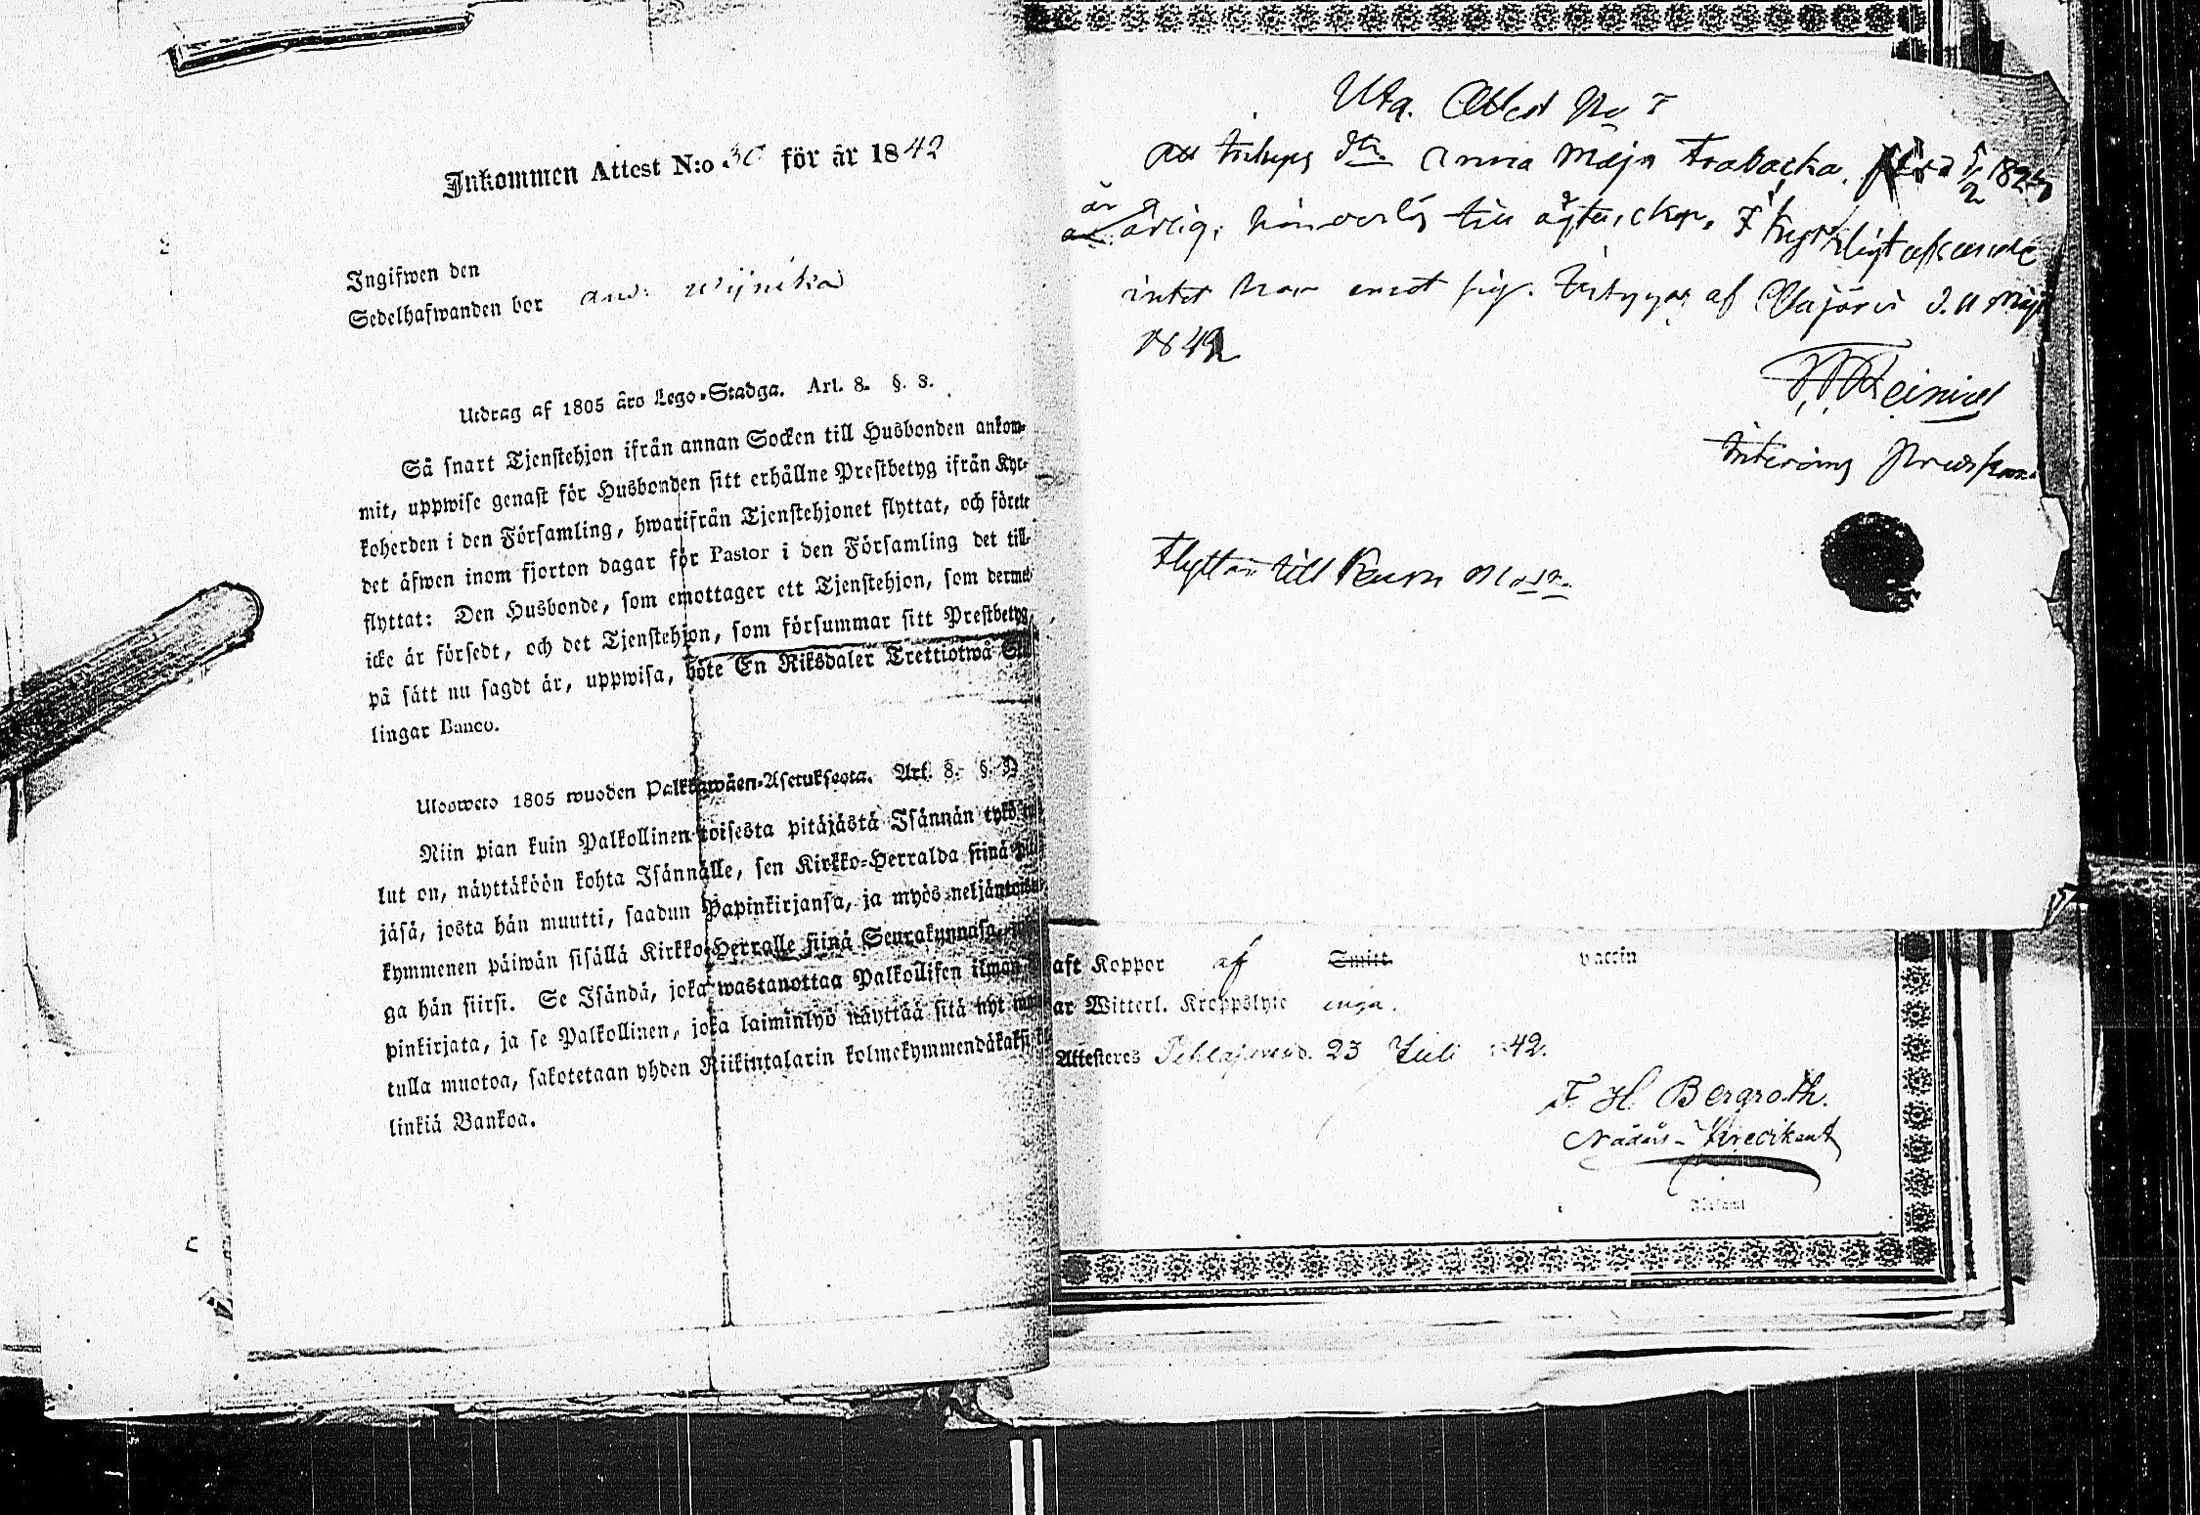 Inkommen Attest N:o 30 för år 1842
Ingifwen den
Sedelhafwanden bor And: Wijnika
Utdrag af 1805 års Lego-Stadga. Art. 8. §. 3.
Så snart Tjenstehjon ifrån annan Socken till Husbonden ankom-
mit, uppwise genast för Husbonden sitt erhållne Prestbetyg ifrån Kyr-
koherden i den Församling, hwarifrån Tjenstehjonet flyttat, och förete
det äfwen inom fjorton dagar för Pastor i den Församling det till-
flyttat: Den Husbonde, som emottager ett Tjenstehjon, som dermed
icke är försedt, och det Tjenstehjon, som försummar sitt Prestbetyg,
på sätt nu sagdt är, uppwisa, böte En Riksdaler Trettiotwå
lingar Banco.
Ulosweto 1805 wuoden Palkkawäen-Asetuksesta. Art. 8. §. 3
Niin pian kuin Palkollinen toisesta pitäjästä Isännän tykö
lut on, näyttäköön kohta Isännälle, sen Kirkko-Herralda siinä
jäsä, josta hän muutti, saadun Papinkirjansa, ja myös neljäntois-
kymmenen päiwän sisällä Kirkko-Herralle siinä Seurakunnasa,
ga hän siirsi. Se Isändä, joka wastanottaa Palkollisen ilman
pinkirjata, ja se Palkollinen, joka laiminlyö näyttää sitä nyt
tulla muotoa, sakotetaan yhden Riikintalarin kolmekymmendäkaksi
linkiä Bankoa.
Utg. Attest No 7
Att Inhyses dtr. Anna Maja Frabacka. 1/2
är
ärlig, hinderlös till ägtenskap,
intet har emot sig. Intygas af Alajärvi d. 11 Maji
1842
Flyttar till
aft Koppor af Smitt. vaccin
ar Witterl. Kroppslyte inga.
Attesteres 23 Juli 1842.
F. H. Bergroth.
Nådårs-Predikant